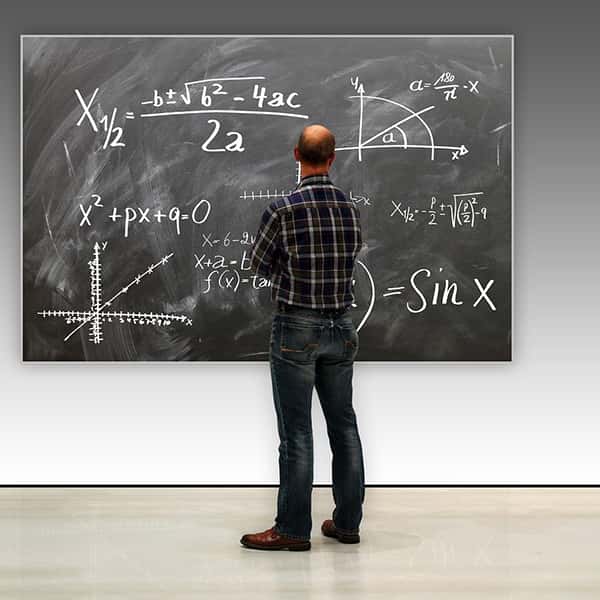 X₁/₂ = -b±√b²-4ac / 2a
y
a = 180/π · x
a
x
x
x²+px+q=0
X₁/₂ = -p/2 ± √(p/2)²-q
x=6-
x+a=
f(x)
=tan
y
x
) = Sin x